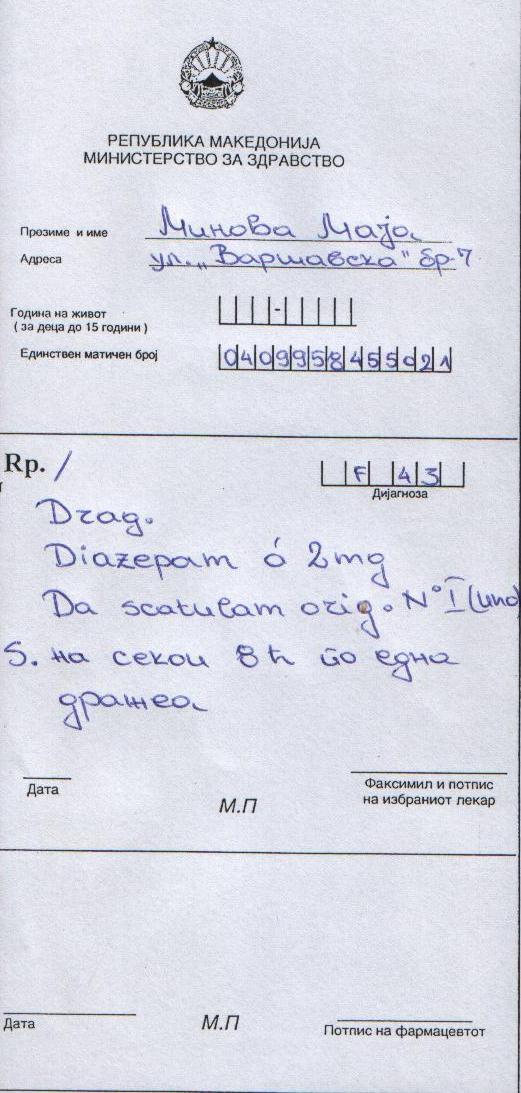 РЕПУБЛИКА МАКЕДОНИЈА
МИНИСТЕРСТВО ЗА ЗДРАВСТВО
Презиме и име Минова Маја
Адреса ул. „Варшавска" бр-7
Година на живот
( за деца до 15 години )
Единствен матичен број 0409958455021
Rp. /
F 43
Дијагноза
Drag.
Diazepam ó 2mg
Da scatulam orig. N° I (uno)
S. на секои 8 h по една
дражеа
Дата
М.П
Факсимил и потпис
на избраниот лекар
Дата
М.П
Потпис на фармацевтот